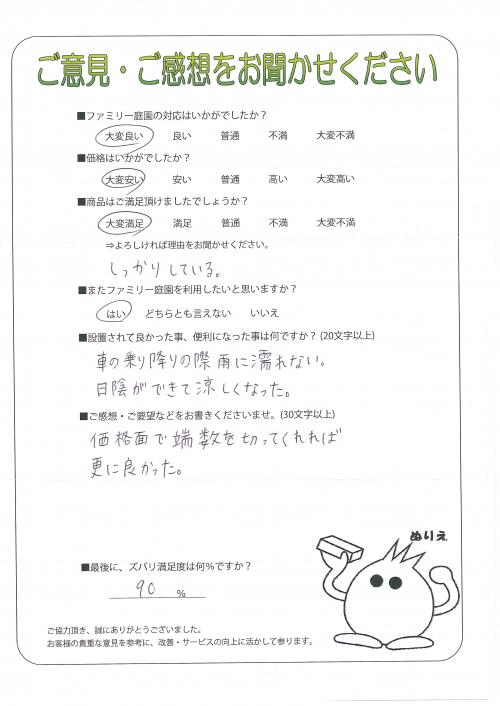 ご意見・ご感想をお聞かせください
■ファミリー庭園の対応はいかがでしたか？
大変良い 良い 普通 不満 大変不満
■価格はいかがでしたか？
大変安い 安い 普通 高い 大変高い
■商品はご満足頂けましたでしょうか？
大変満足 満足 普通 不満 大変不満
⇒よろしければ理由をお聞かせください。
しっかりしている。
■またファミリー庭園を利用したいと思いますか？
はい どちらとも言えない いいえ
■設置されて良かった事、便利になった事は何ですか？(20文字以上)
車の乗り降りの際雨に濡れない。
日陰ができて涼しくなった。
■ご感想・ご要望などをお書きくださいませ。(30文字以上)
価格面で端数を切ってくれれば
更に良かった。
ぬりえ
■最後に、ズバリ満足度は何％ですか？
90 ％
ご協力頂き、誠にありがとうございました。
お客様の貴重な意見を参考に、改善・サービスの向上に活かして参ります。